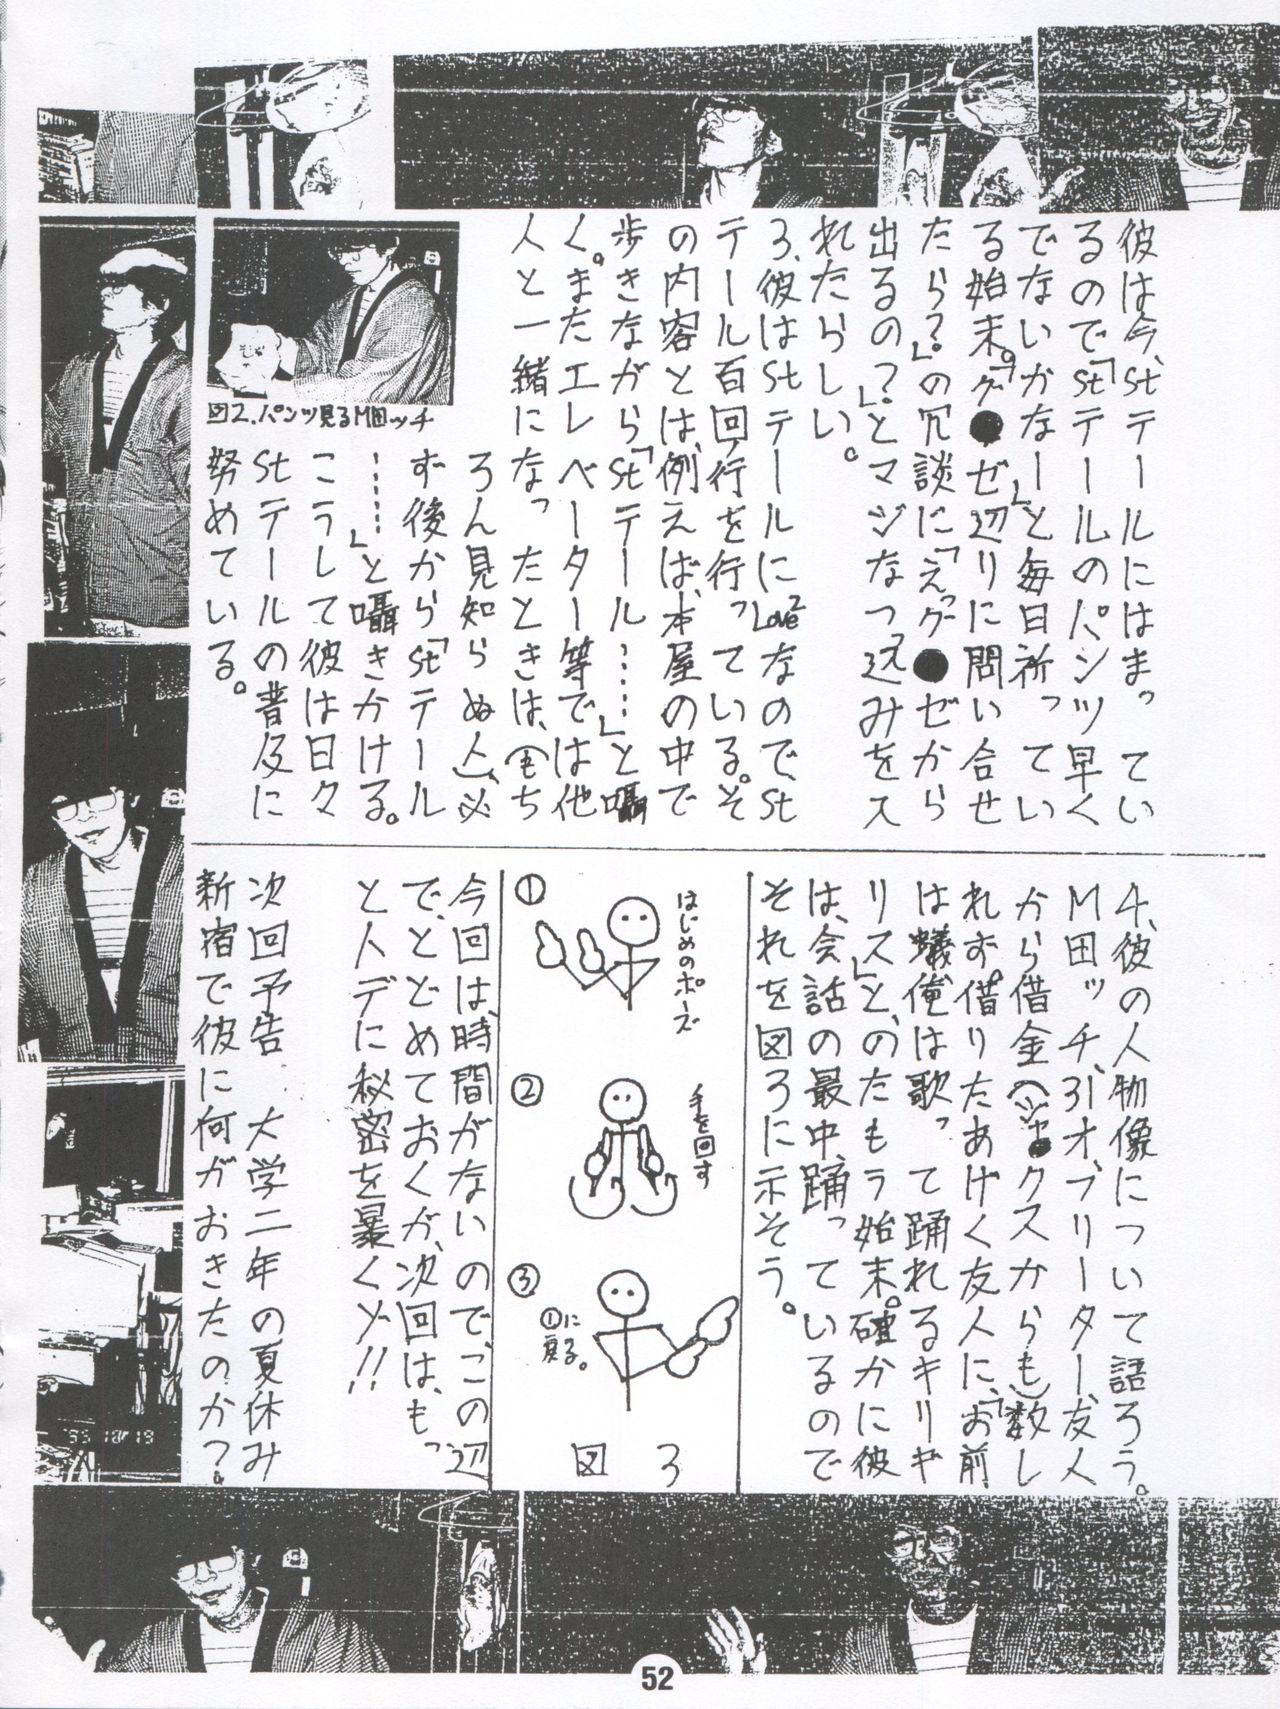 彼は今、Stテールにはまってい
るので「Stテールのパンツ早く
でないかなー」と毎日祈ってい
る始末。「グ●ゼ辺りに問い合せ
たら?」の冗談に「えっグ●ゼから
出るの?」とマジなつっ込みを入
れたらしい。
3、彼はStテールにLove2なのでSt
テール百回行を行っている。そ
の内容とは、例えば、本屋の中で
歩きながら「Stテール……」と囁
く。またエレベーター等では他
人と一緒になったときは、(もち
ろん見知らぬ人)必
ず後から「Stテール
……」と囁きかける。
こうして彼は日々
Stテールの普及に
努めている。
図2.パンツ見るM田ッチ
4、彼の人物像について語ろう。
M田ッチ、31才、フリーター、友人
から借金(ジャ●クスからも)数し
れず。借りたあげく友人に、「お前
は蟻俺は歌って踊れるキリギ
リス」と、のたもう始末。確かに彼
は、会話の最中、踊っているので
それを図3に示そう。
①
はじめのポーズ
②
手を回す
③
①に
戻る。
図3
今回は、時間がないので、この辺
で、とどめておくが、次回は、もっ
と人デに秘密を暴くゾ!!
次回予告 大学二年の夏休み
新宿で彼に何がおきたのか?
52